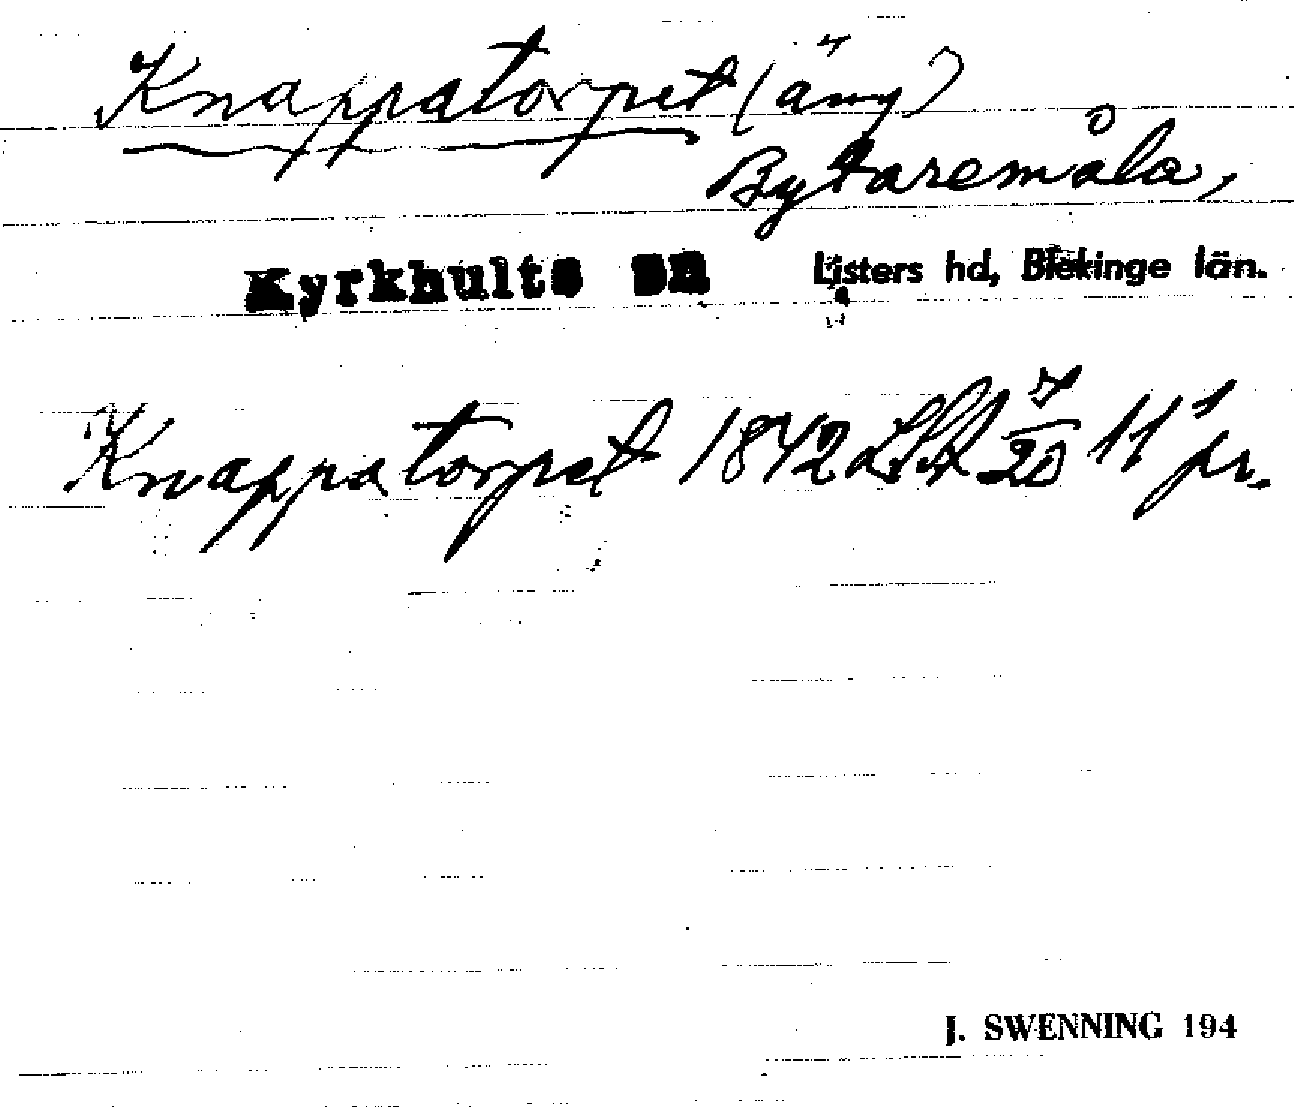 Knappatorpet (äng)
Bytaremåla,
Kyrkhults sn Listers hd, Blekinge län.
Knappatorpet 1842 LSA 7/20 11¹ pr.
J. SWENNING 194